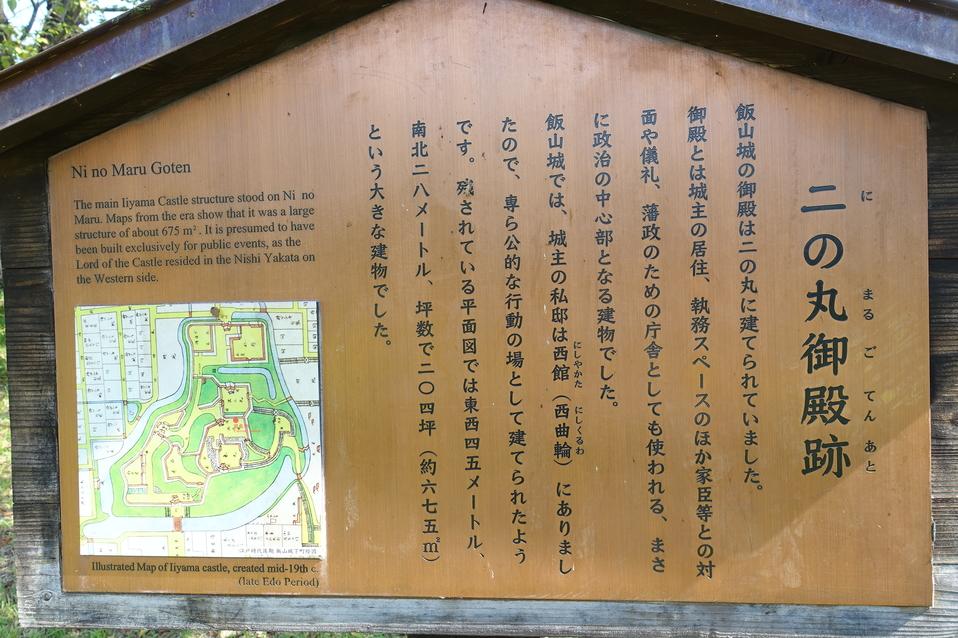 二の丸御殿跡
に まる ご てん あと
飯山城の御殿は二の丸に建てられていました。
御殿とは城主の居住、執務スペースのほか家臣等との対
面や儀礼、藩政のための庁舎としても使われる、まさ
に政治の中心部となる建物でした。
飯山城では、城主の私邸は西館（西曲輪）にありまし
にしやかた にしくるわ
たので、専ら公的な行動の場として建てられたよう
です。残されている平面図では東西四五メートル、
南北二八メートル、坪数で二〇四坪（約六七五㎡）
という大きな建物でした。
Ni no Maru Goten
The main Iiyama Castle structure stood on Ni no
Maru. Maps from the era show that it was a large
structure of about 675 m². It is presumed to have
been built exclusively for public events, as the
Lord of the Castle resided in the Nishi Yakata on
the Western side.
江戸時代後期 飯山城下町絵図
Illustrated Map of Iiyama castle, created mid-19th c.
(late Edo Period)